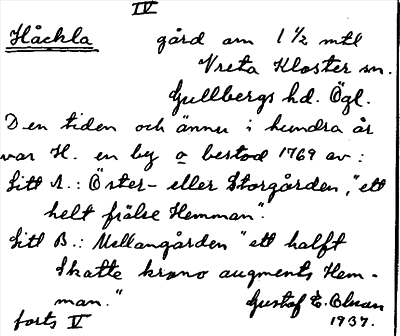 IV
Håckla gård om 1 1/2 mtl
Vreta Kloster sn.
Gullbergs hd. Ögl.
Den tiden och ännu i hundra år
var H. en by o bestod 1769 av:
Litt A.: Öster- eller Storgården, "ett
helt frälse Hemman".
Litt B.: Mellangården "ett halft
Skatte krono augments Hem-
man." Gustaf E.
forts V 1937.